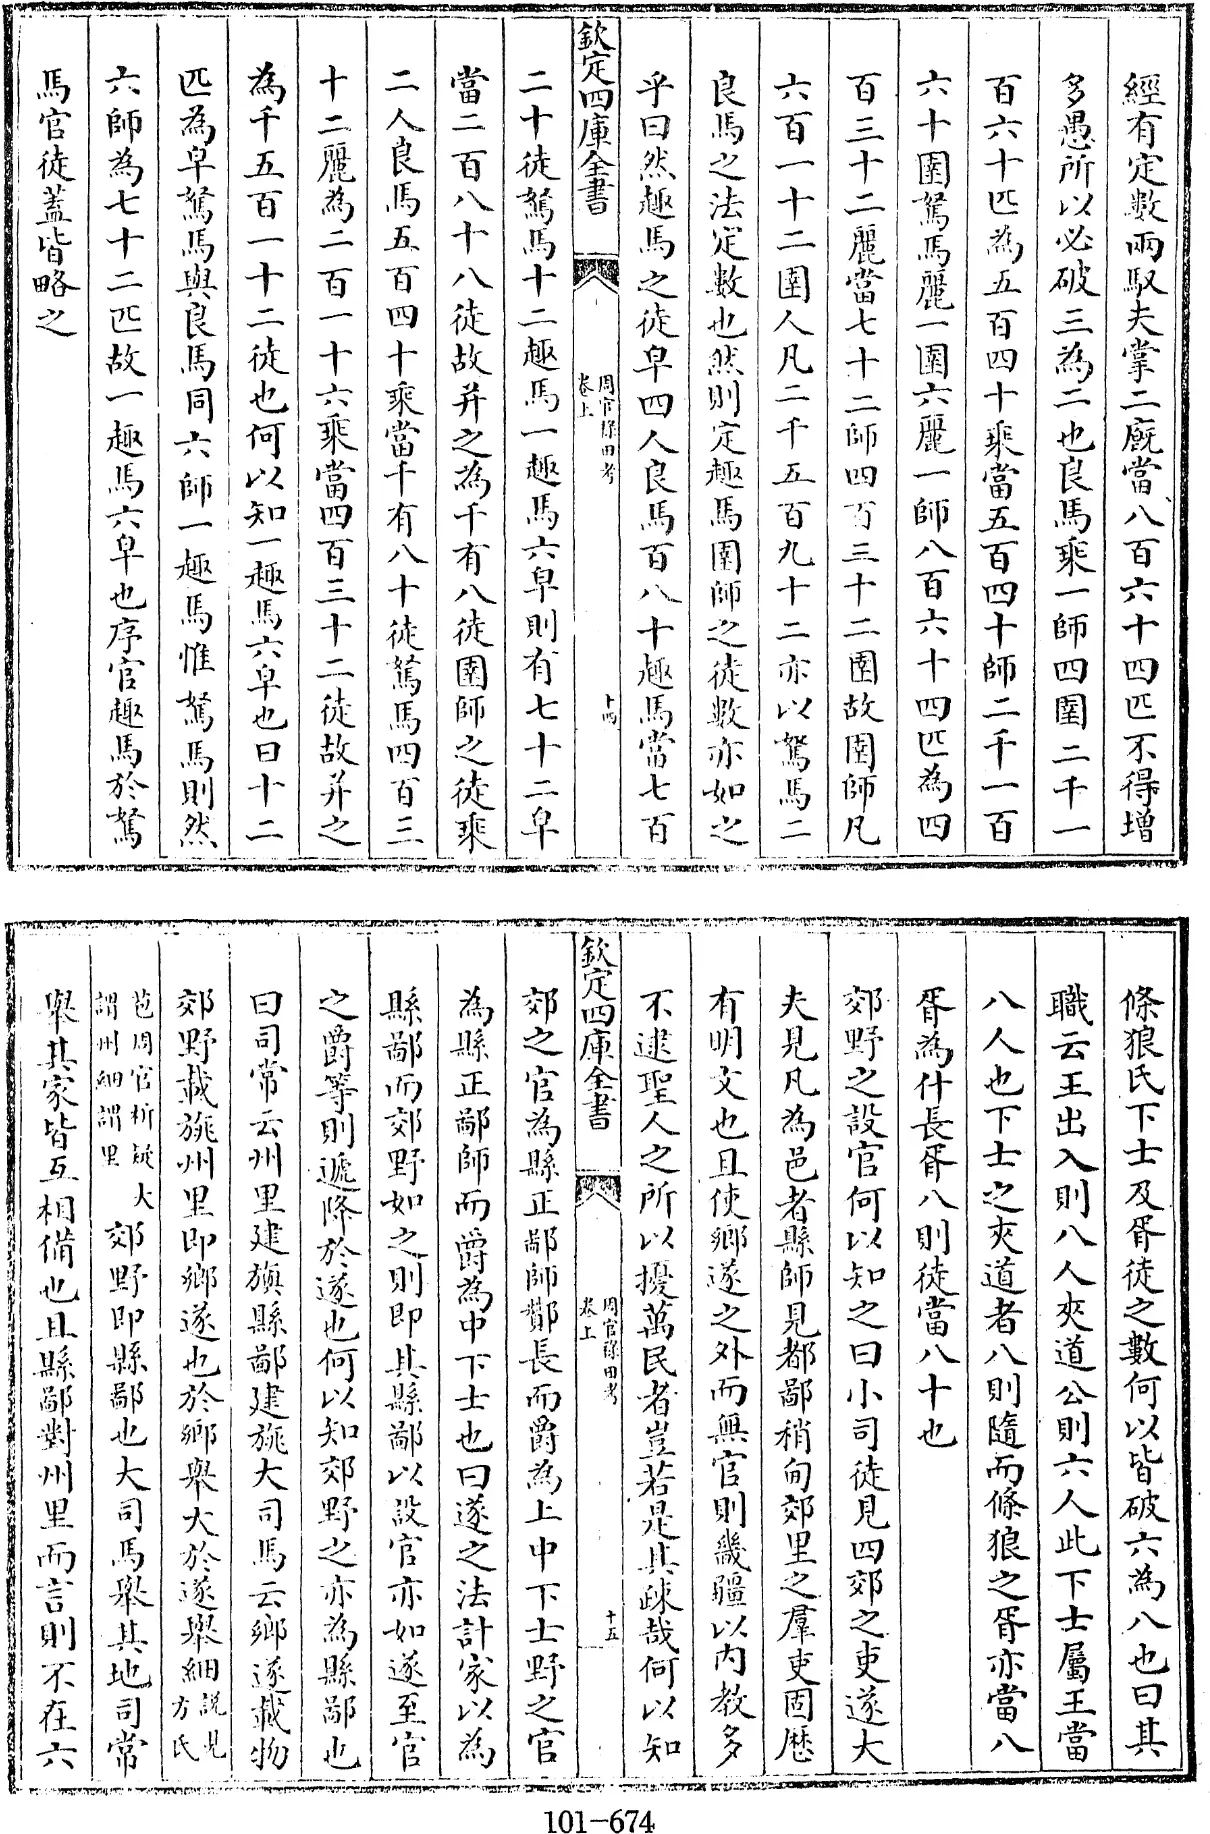 經有定數兩馭夫掌二廐當八百六十四匹不得增
多愚所以必破三為二也良馬乘一師四圉二千一
百六十匹為五百四十乘當五百四十師二千一百
六十圉駑馬麗一圉六麗一師八百六十四匹為四
百三十二麗當七十二師四百三十二圉故圉師凡
六百一十二圉人凡二千五百九十二亦以駑馬二
良馬之法定數也然則定趣馬圉師之徒數亦如之
乎曰然趣馬之徒皁四人良馬百八十趣馬當七百
欽定四庫全書
周官祿田考
卷上
十四
二十徒駑馬十二趣馬一趣馬六皁則有七十二皁
當二百八十八徒故并之為千有八徒圉師之徒乘
二人良馬五百四十乘當千有八十徒駑馬四百三
十二麗為二百一十六乘當四百三十二徒故并之
為千五百一十二徒也何以知一趣馬六皁也曰十二
匹為皁駑馬與良馬同六師一趣馬惟駑馬則然
六師為七十二匹故一趣馬六皁也序官趣馬於駑
馬官徒蓋皆略之
條狼氏下士及胥徒之數何以皆破六為八也曰其
職云王出入則八人夾道公則六人此下士屬王當
八人也下士之夾道者八則隨而條狼之胥亦當八
胥為什長胥八則徒當八十也
郊野之設官何以知之曰小司徒見四郊之吏遂大
夫見凡為邑者縣師見都鄙稍甸郊里之羣吏固歷
有明文也且使鄉遂之外而無官則畿疆以內教多
不逮聖人之所以擾萬民者豈若是其疎哉何以知
欽定四庫全書
周官祿田考
卷上
十五
郊之官為縣正鄙師酇長而爵為上中下士野之官
為縣正鄙師而爵為中下士也曰遂之法計家以為
縣鄙而郊野如之則即其縣鄙以設官亦如遂至官
之爵等則遞降於遂也何以知郊野之亦為縣鄙也
曰司常云州里建旟縣鄙建旐大司馬云鄉遂載物
郊野載旐州里即鄉遂也於鄉舉大於遂舉細說見方氏
苞周官析疑大謂州細謂里郊野即縣鄙也大司馬舉其地司常
舉其家皆互相備也且縣鄙對州里而言則不在六
101-674